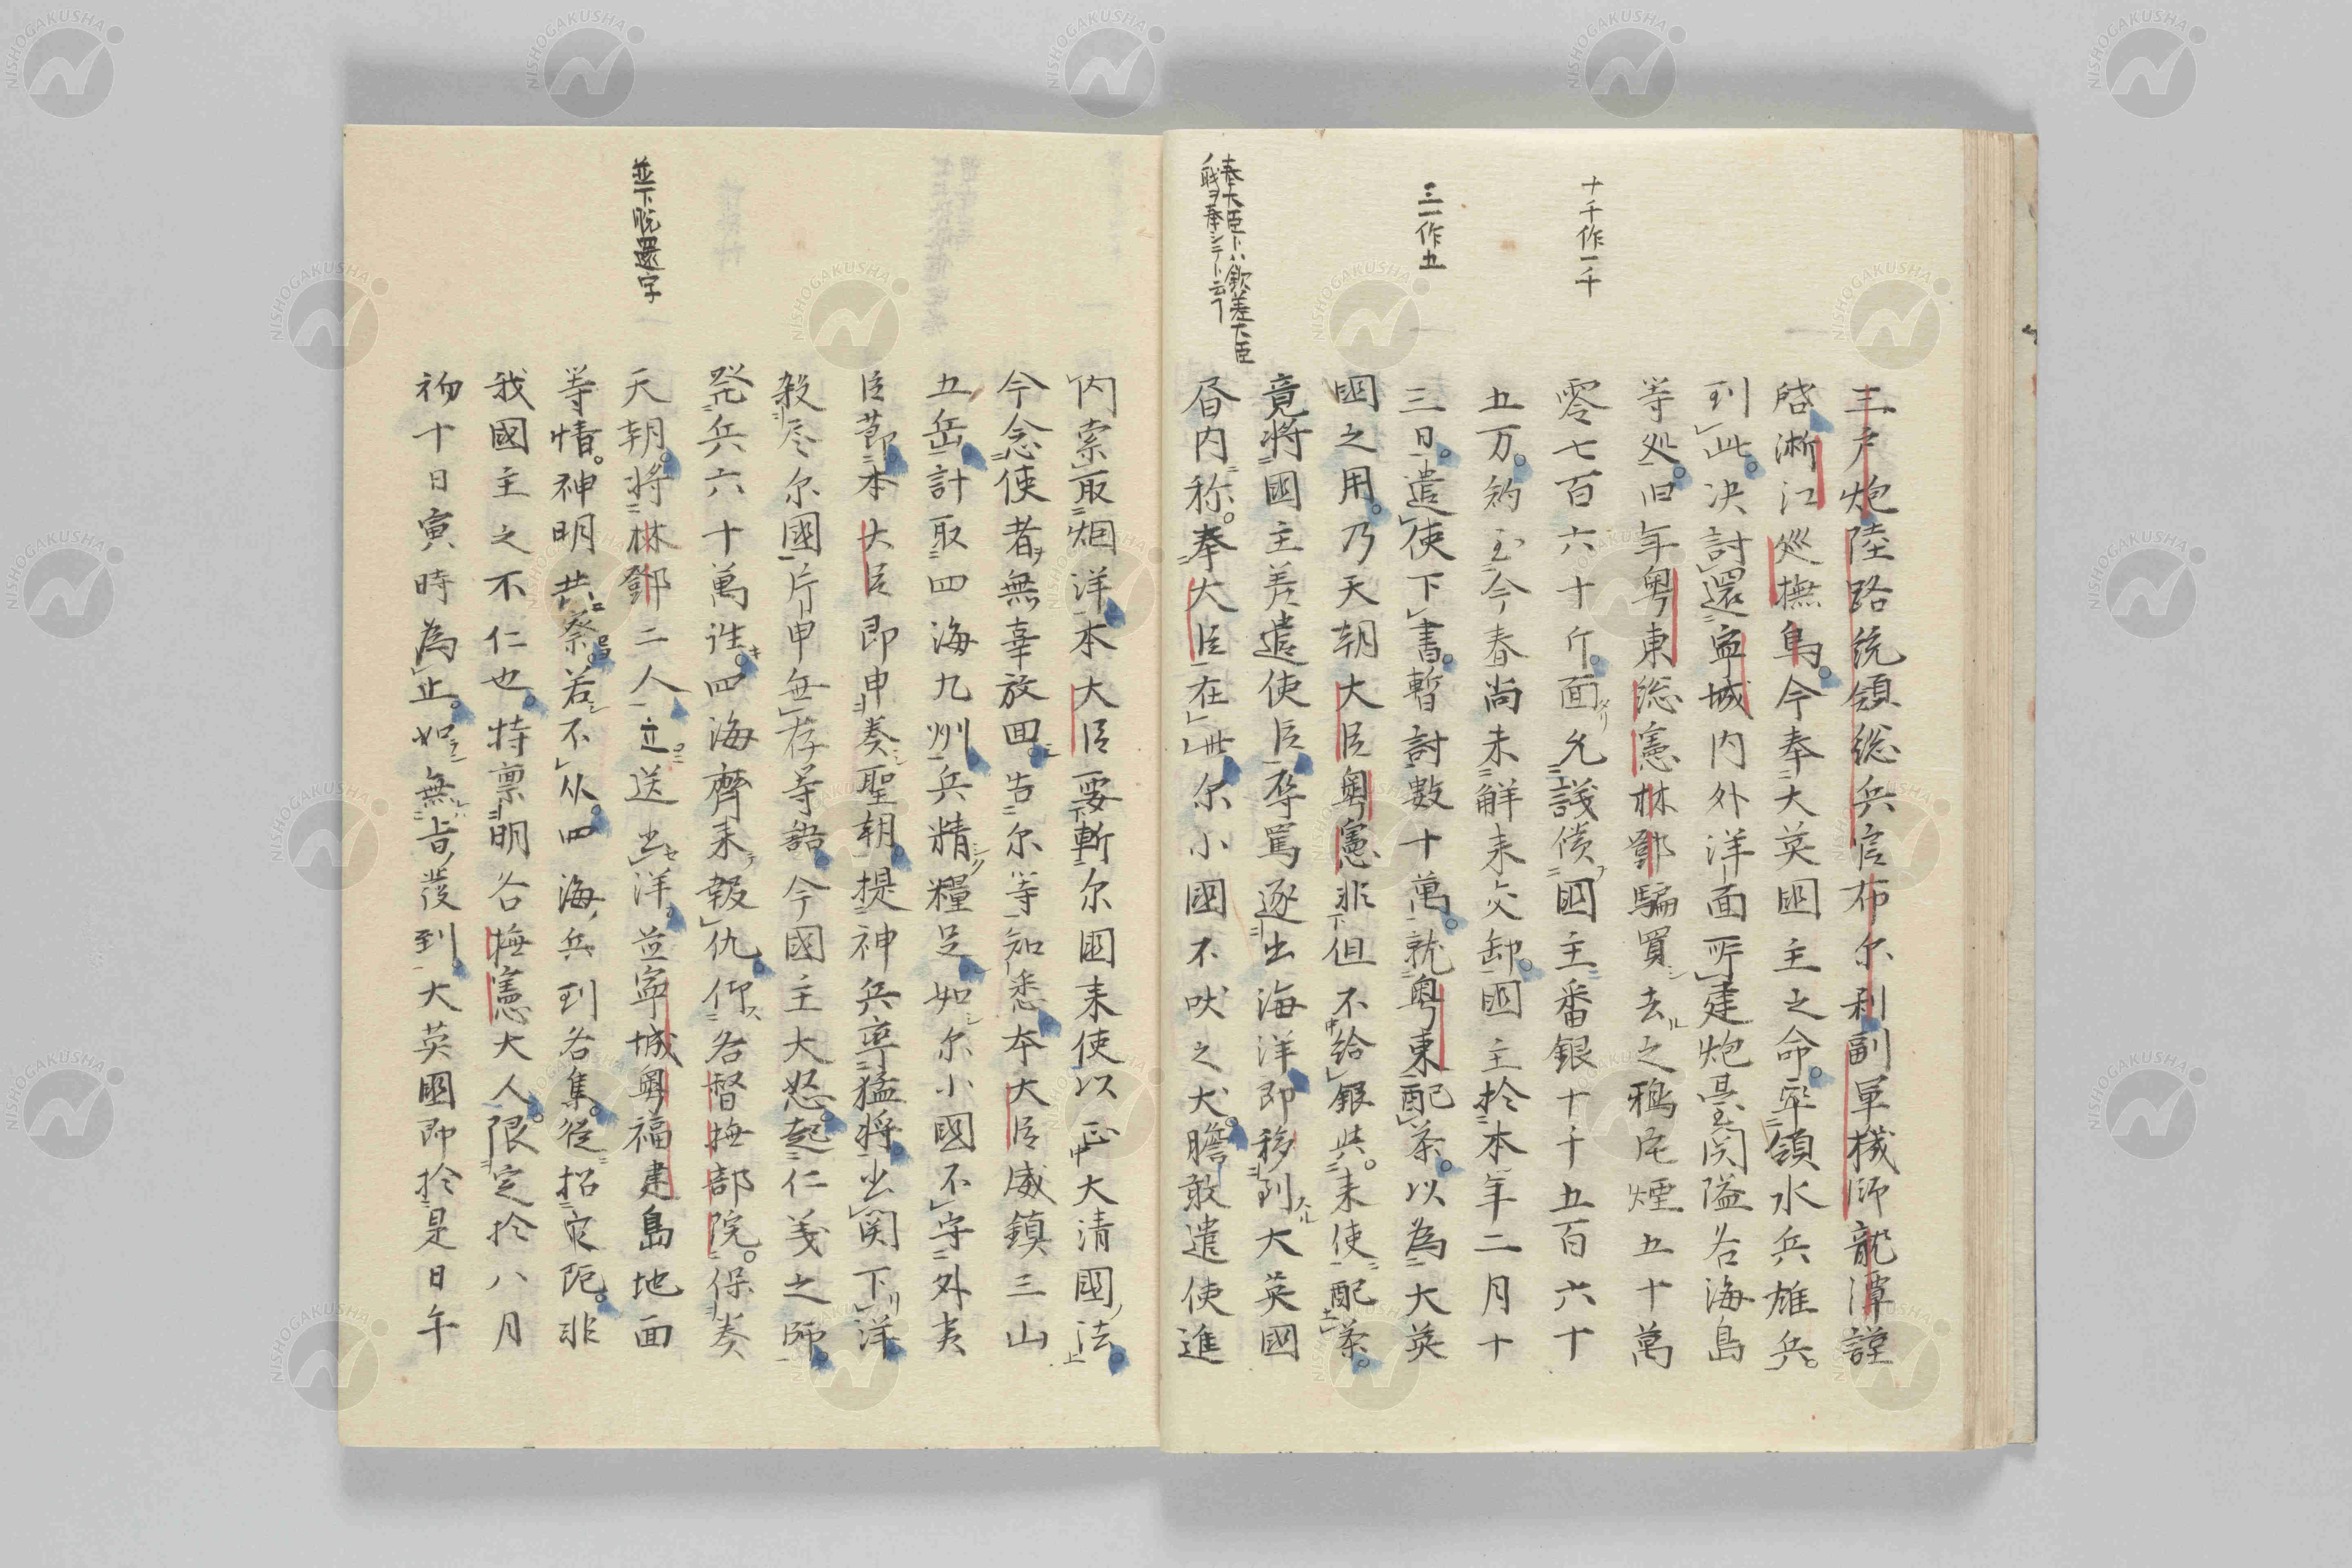 十千作一千
三一作五
奉大臣トハ欽差大臣
王戶炮陸路統領総兵官布尔利副軍機師龍潭謹
啓淅江巡撫烏。今奉大英囯主之命。率領水兵雄兵。
到此。决討還寧城内外洋面所建炮臺関隘各海島
等処。旧年粤東総憲林鄧騙買去之鴉片煙五十萬
零七百六十斤。面允議償國主番銀十千五百六十
五万。約至今春尚未觧来交卸。囯主於本年二月十
三日。遣使下書。暫討數十萬。就粤東配茶。以為大英
囯之用。乃天朝大臣粤憲非但不給銀。共来使配茶。
竟將國主差遣使臣辱罵逐出海洋即移到大英國
昏内称。奉大臣在世尔小國不吠之犬。膽敢遣使進
内索取烟洋本大臣要斬尔囯来使以正大清國法。
今念使者無辜放回。告尔等知悉本大臣威鎮三山
五岳計取四海九州兵精糧足如尔小國不守外夷
臣節本大臣即申奏聖朝提神兵率猛將出関下洋
殺尽尔國片甲無存等語今國主大怒。起仁義之師
発兵六十萬谁。四海齊来報仇仰各督撫部院。保奏
天朝。將林鄧二人立送出洋並寧城粤福建島地面
等情。神明共察。若不从。四海兵到各集。從招灾陁。非
我國主之不仁也。特禀明各撫憲大人。限定於八月
初十日寅時為止。如無旨後到。大英國即於是日午
並下脱還字